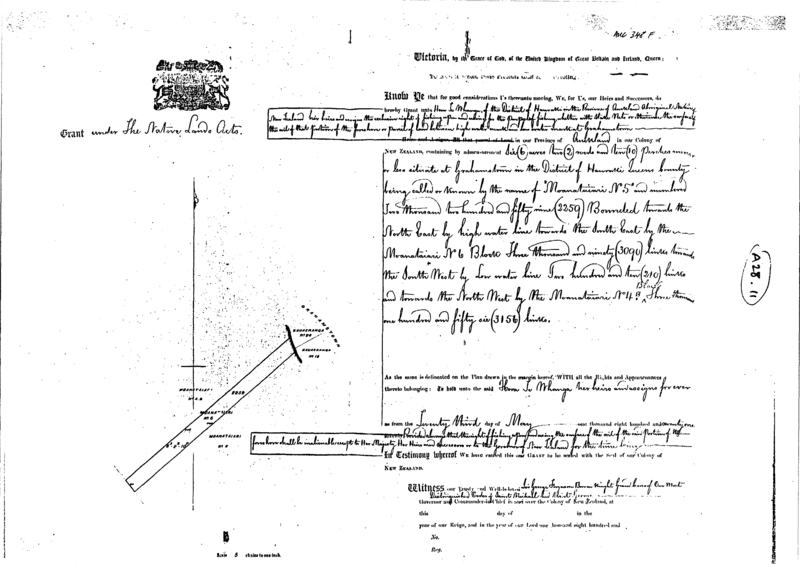 MLC 348 F
Victoria, by the Grace of God, of the United Kingdom of Great Britain and Ireland, Queen:
Greeting.
Know Ye that for good considerations Us thereunto moving, We, for Us, our Heirs and Successors, do
hereby Grant unto Hera Te Whanga of the District of Hauraki in the Province of Auckland Aboriginal Native
New Zealand her heirs and assigns the exclusive right of fishing upon and
the soil of that portion of the foreshore or parcel of land between high water mark and low water mark at Grahamstown
Grant under The Native Lands Acts.
in our Province of Auckland in our Colony of
NEW ZEALAND, containing by admeasurement Six (6) acres two (2) roods and ten (10) Perches more
or less situate at Grahamstown in the District of Hauraki Queens County
being called or known by the name of "Moanataiari No 5" and numbered
Two thousand two hundred and fifty nine (2259) Bounded towards the
North East by high water line towards the South East by the
Moanataiari No 6 Block Three thousand and ninety (3090) links towards
the South West by Low water line Two hundred and ten (210) links
and towards the North West by the Moanataiari No 4a Block Three thousand
one hundred and fifty six (3156) links.
A28.11
As the same is delineated on the Plan drawn in the margin hereof, WITH all the Rights and Appurtenances
thereto belonging: To hold unto the said Hera Te Whanga her heirs and assigns for ever
as from the Twenty third day of May one thousand eight hundred and seventy one
foreshore shall be inalienable except to Her Majesty Her Heirs and successors or to the Governor of New Zealand for the time being
In Testimony whereof We have caused this our GRANT to be sealed with the Seal of our Colony of
NEW ZEALAND.
Witness our Trusty and Well-beloved Sir George Ferguson Bowen Knight Grand Cross of Our Most
Distinguished Order of Saint Michael and Saint George
Governor and Commander-in-Chief in and over the Colony of New Zealand, at
this day of in the
year of our Reign, and in the year of our Lord one thousand eight hundred and
No.
Reg.
MOANATAIARI
MOANATAIARI
MOANATAIARI
Scale 5 chains to one inch.